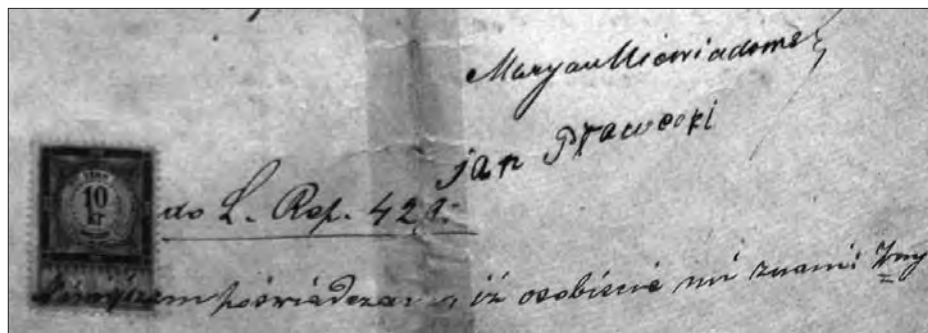 Maryan Niewiadomski
jan Prawecki
10
kr
do L. Rep. 421.
Niniejszem poświadczam, iż osobiście mi znani